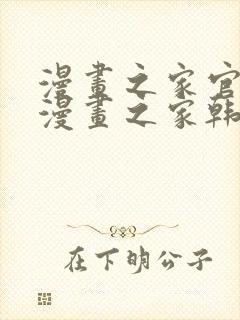 漫畫之家官
漫畫之家韩
在下明公子